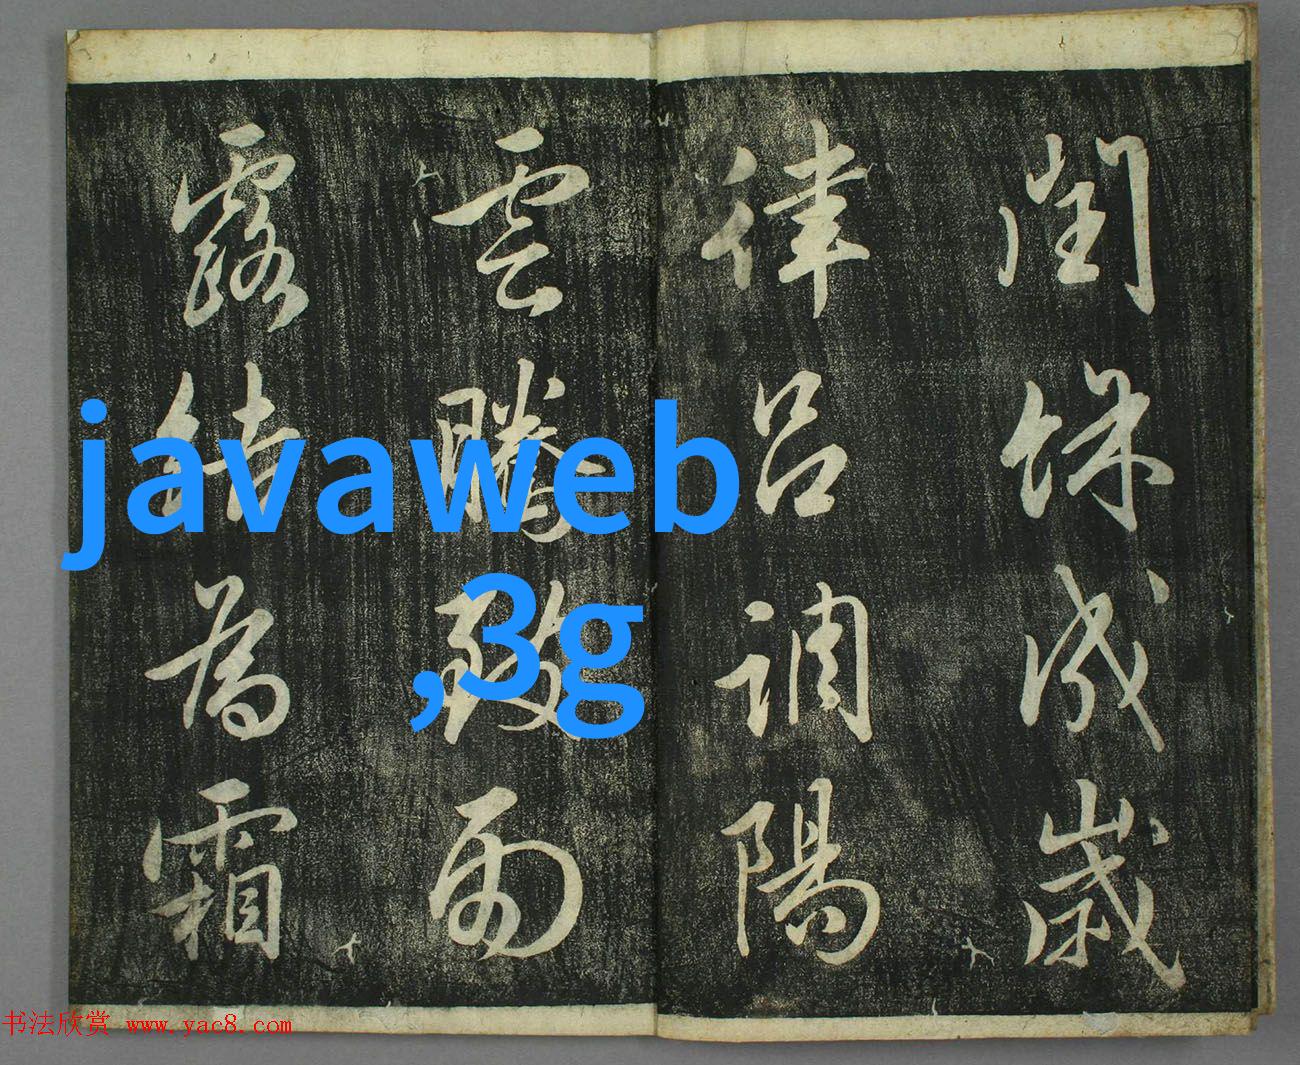 閏餘成歲
律呂調陽
雲騰致雨
露結為霜
javaweb
,3g
书法欣赏 www.yac8.com